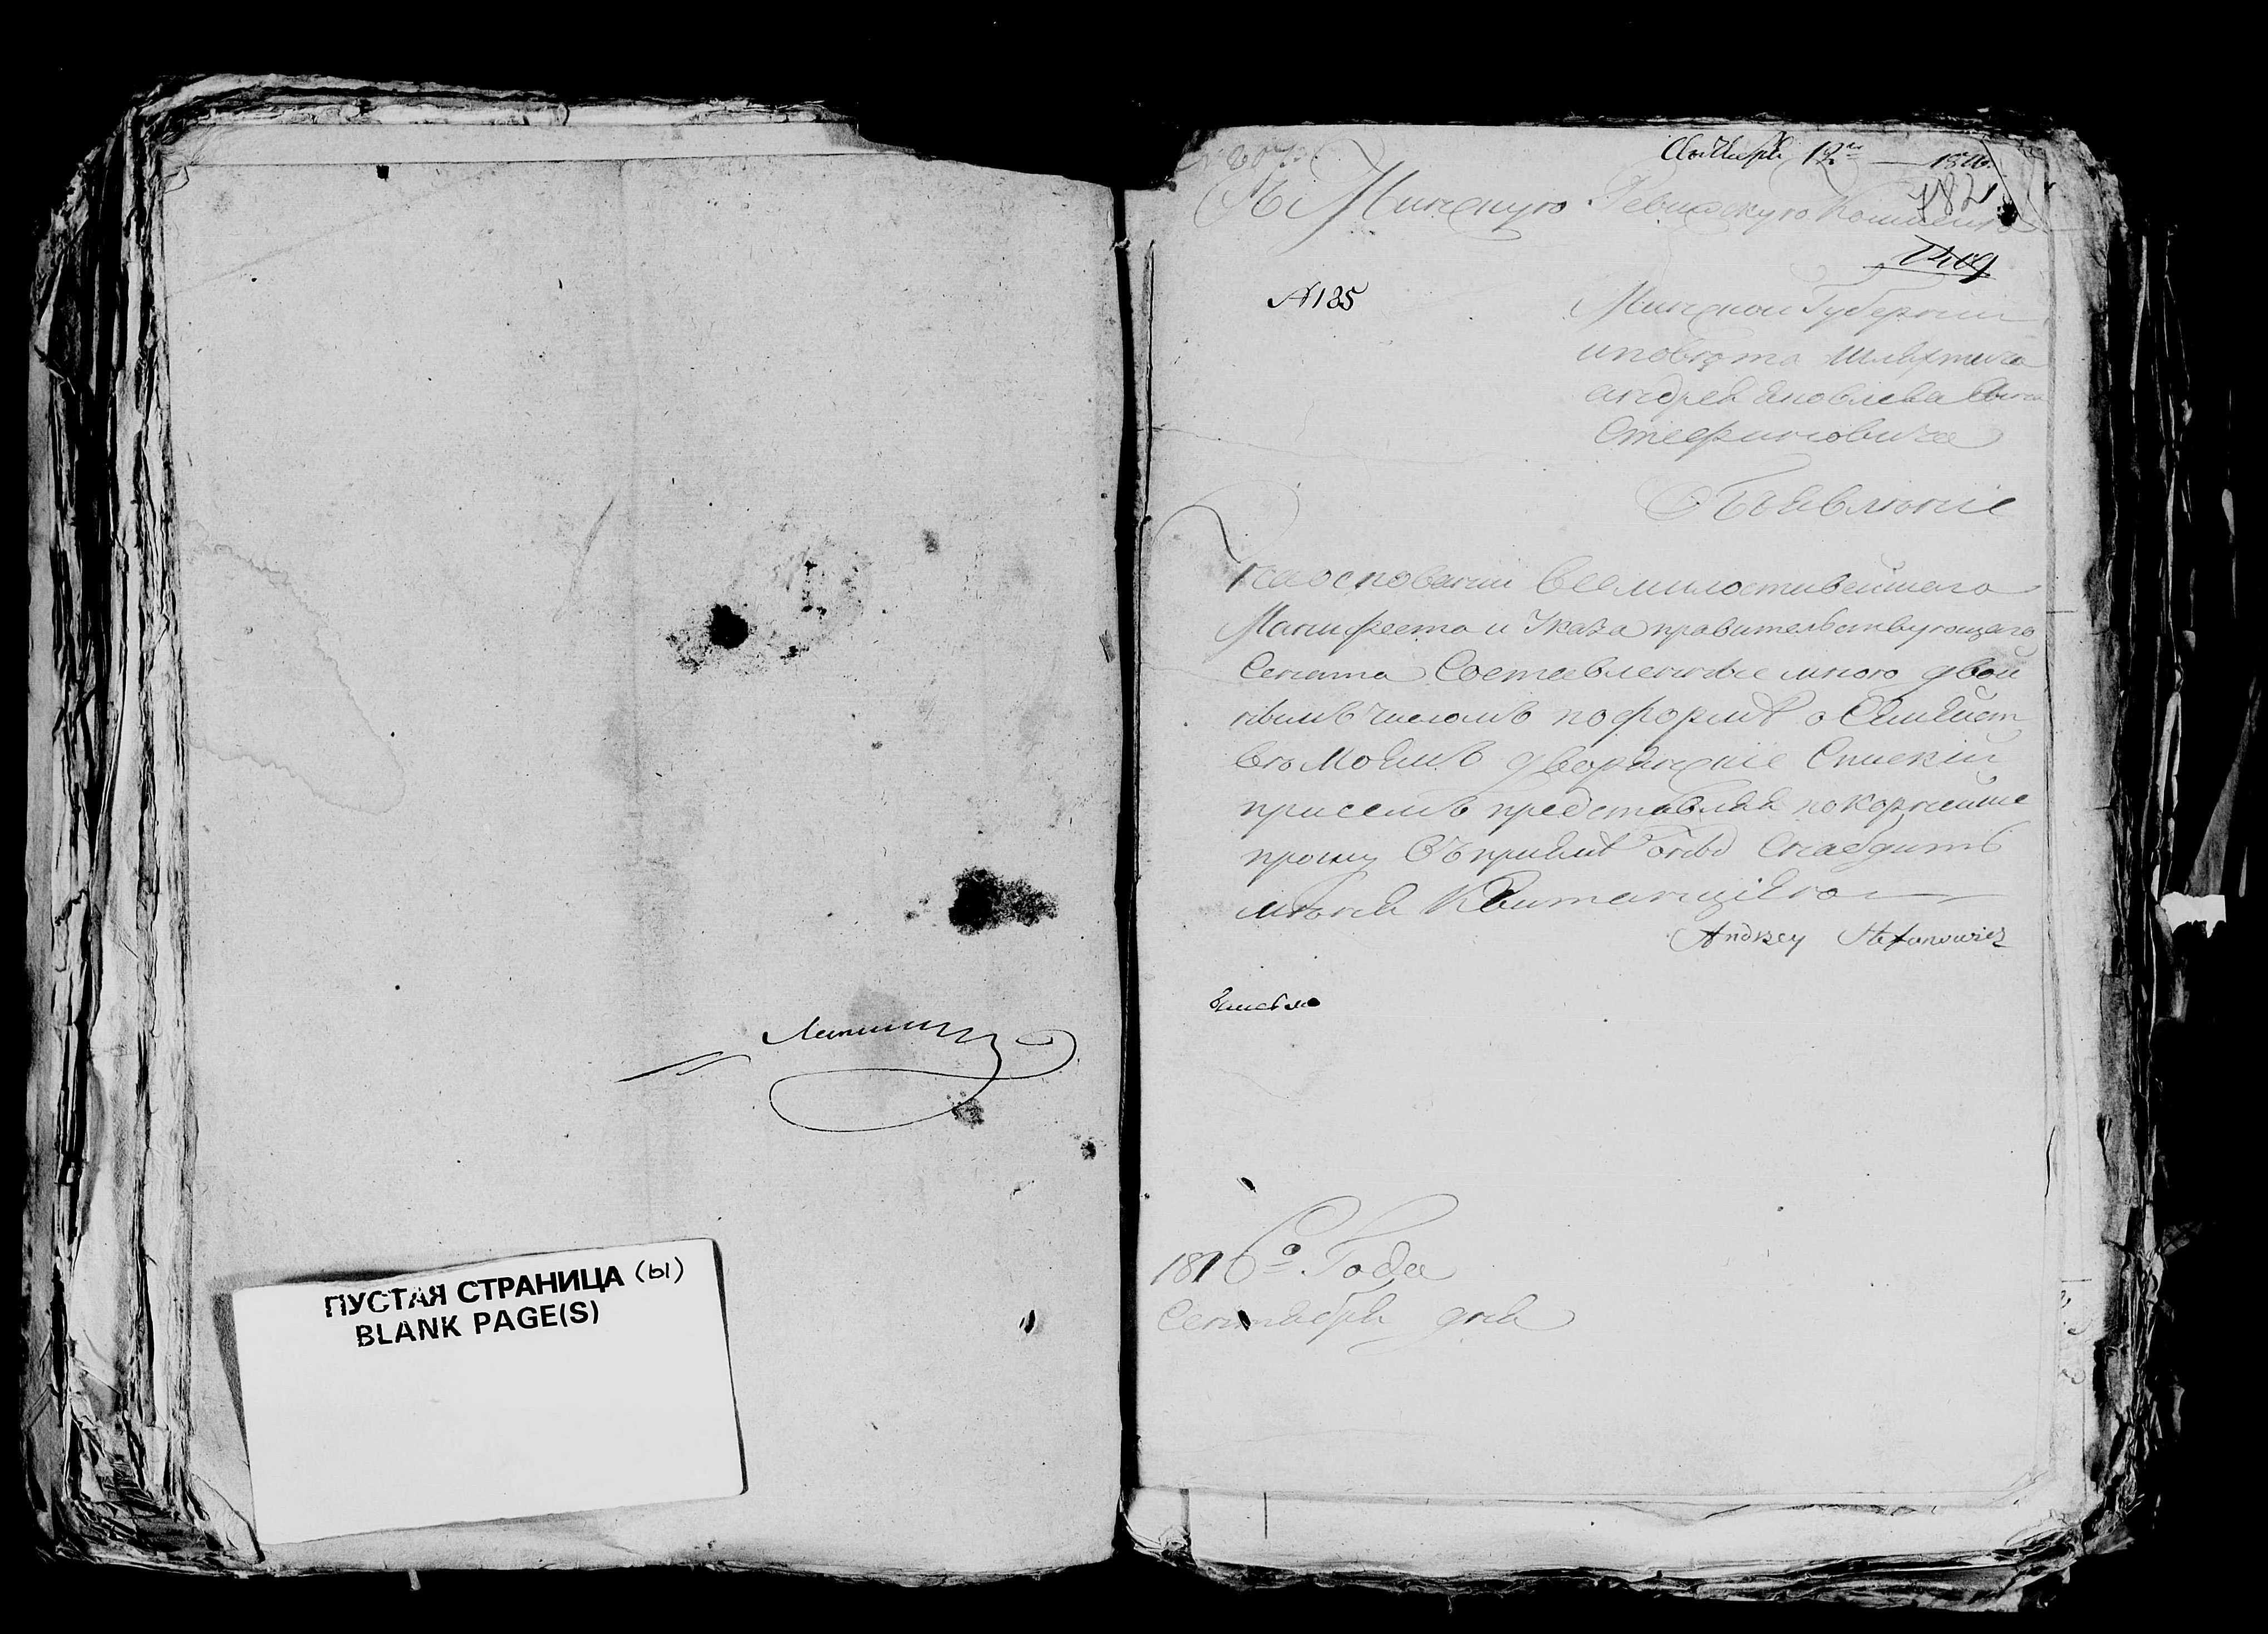 Латыш
ПУСТАЯ СТРАНИЦА (ы)
BLANK PAGE(S)
Сентября 12го 1816
182
Въ Минскую Ревизскую Комисію
1409
№ 185
Минской Губерніи
иповета шляхтича
андрея яковлева Сына
Стефановича
Объявленіе
На основаніи Всемилостивейшаго
Манифеста и Указа правительствующаго
Сената Составленные мною двой
нымъ числомъ по форме о Семейст
ве моемъ дворянскіе Списки
присемъ представляя покорнейше
прошу Въ приеме оныхъ Снабдить
меня Квитанціею
Andrzey Stefanowicz
1816го Года
Сентября дня